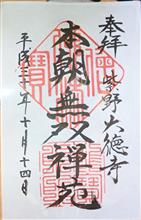 奉拝 紫野 大徳寺
本朝無双禅苑
平成三十年十月十四日